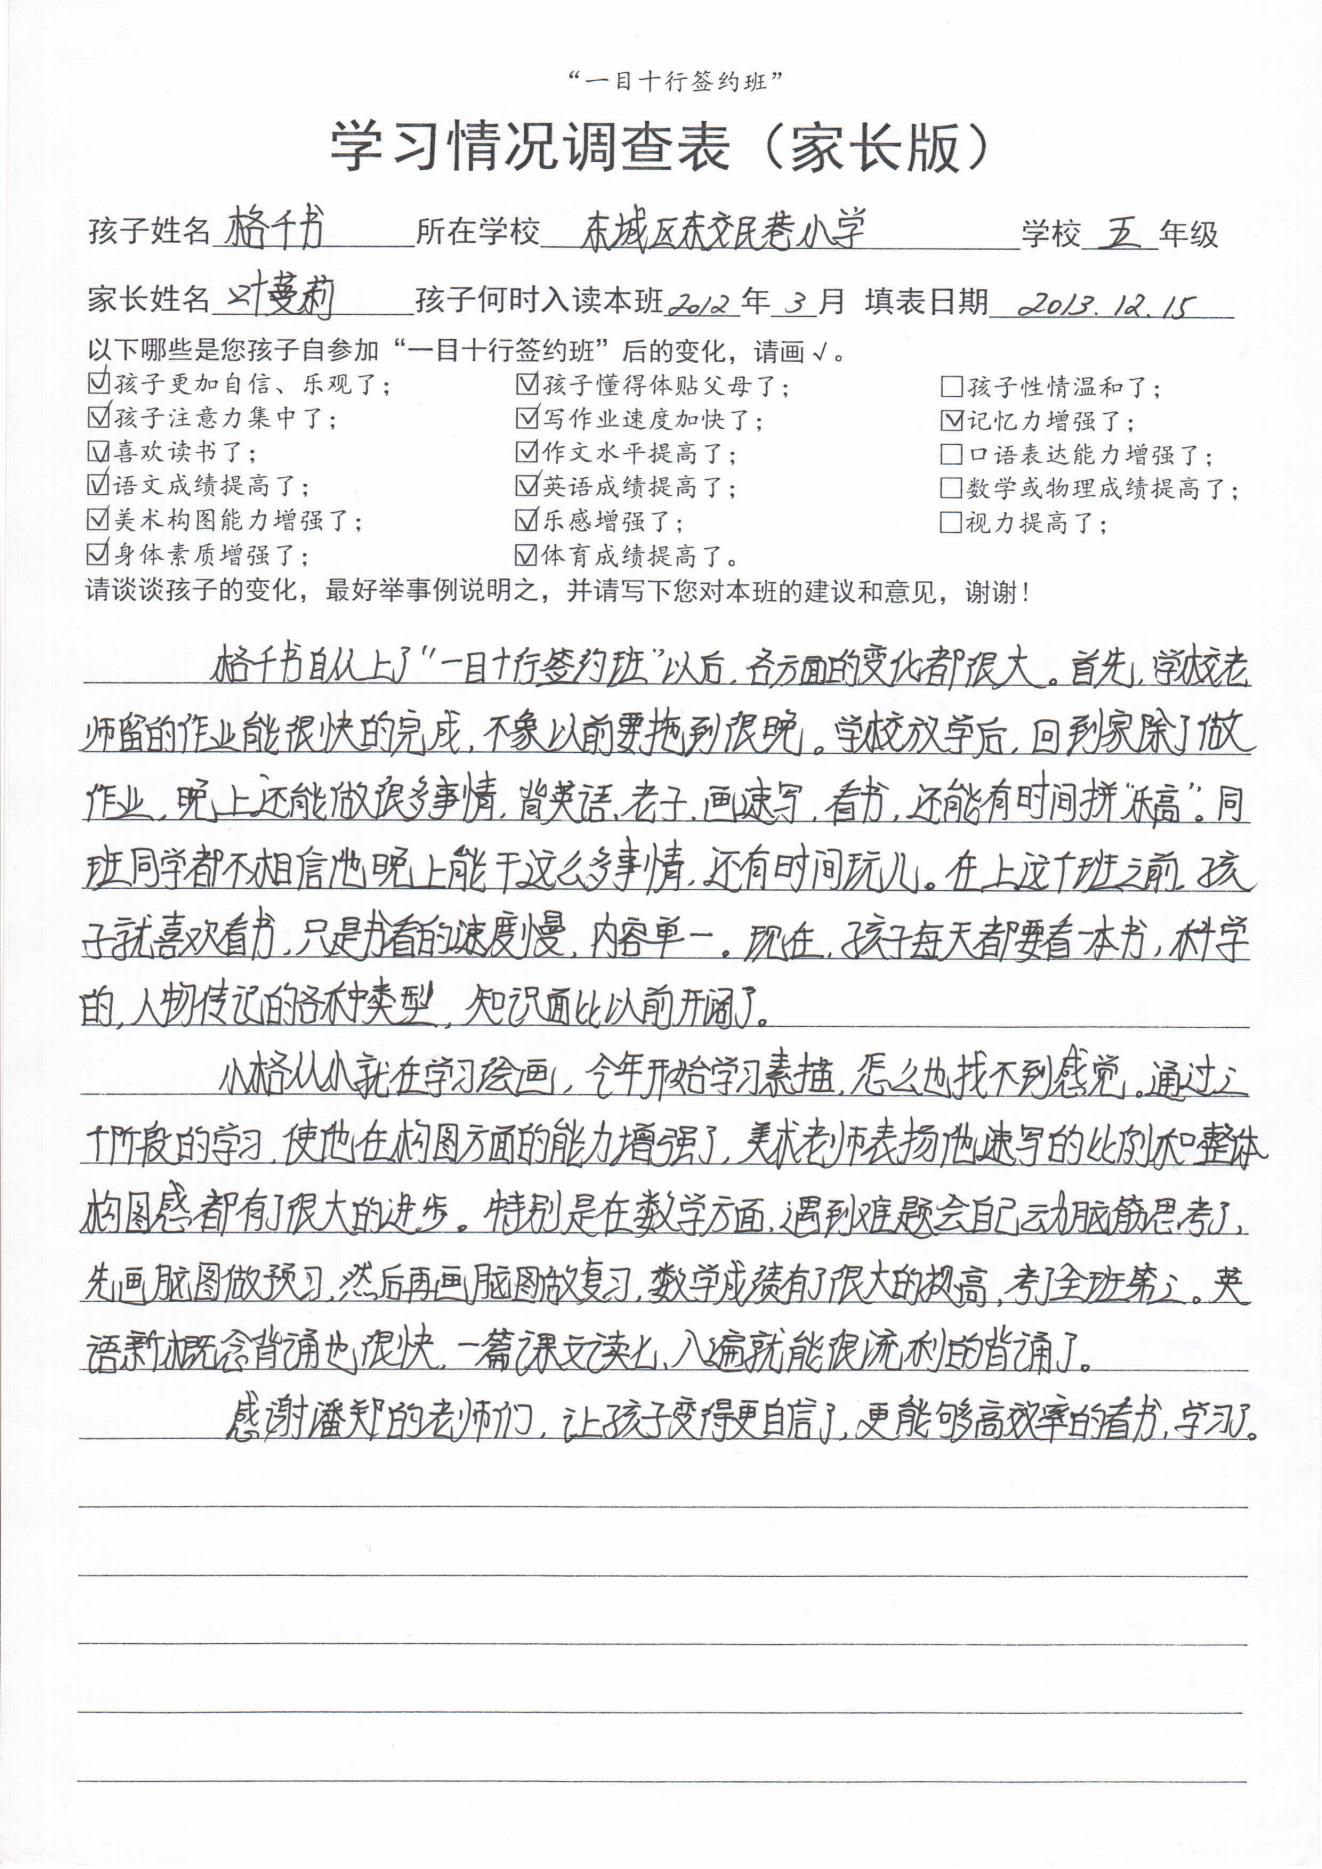 “一目十行签约班”
学习情况调查表（家长版）
孩子姓名 格千书 所在学校 东城区东交民巷小学 学校 五 年级
家长姓名 叶蔓莉 孩子何时入读本班 2012 年 3 月 填表日期 2013.12.15
以下哪些是您孩子自参加“一目十行签约班”后的变化，请画√。
☑孩子更加自信、乐观了； ☑孩子懂得体贴父母了； □孩子性情温和了；
☑孩子注意力集中了； ☑写作业速度加快了； ☑记忆力增强了；
☑喜欢读书了； ☑作文水平提高了； □口语表达能力增强了；
☑语文成绩提高了； ☑英语成绩提高了； □数学或物理成绩提高了；
☑美术构图能力增强了； ☑乐感增强了； □视力提高了；
☑身体素质增强了； ☑体育成绩提高了。
请谈谈孩子的变化，最好举事例说明之，并请写下您对本班的建议和意见，谢谢！
格千书自从上了“一目十行签约班”以后，各方面的变化都很大。首先，学校老
师留的作业能很快的完成，不象以前要拖到很晚。学校放学后，回到家除了做
作业，晚上还能做很多事情，背英语、老子，画速写，看书，还能有时间拼“乐高”。同
班同学都不相信他晚上能干这么多事情，还有时间玩儿。在上这个班之前，孩
子就喜欢看书，只是书看的速度慢，内容单一。现在，孩子每天都要看一本书，科学
的，人物传记的各种类型，知识面比以前开阔了。
小格从小就在学习绘画，今年开始学习素描，怎么也找不到感觉。通过三
个阶段的学习，使他在构图方面的能力增强了，美术老师表扬他速写的比例和整体
构图感都有了很大的进步。特别是在数学方面，遇到难题会自己动脑筋思考了，
先画脑图做预习，然后再画脑图做复习，数学成绩有了很大的提高，考了全班第三。英
语新概念背诵也很快，一篇课文读七、八遍就能很流利的背诵了。
感谢潘郑的老师们，让孩子变得更自信了，更能够高效率的看书，学习了。